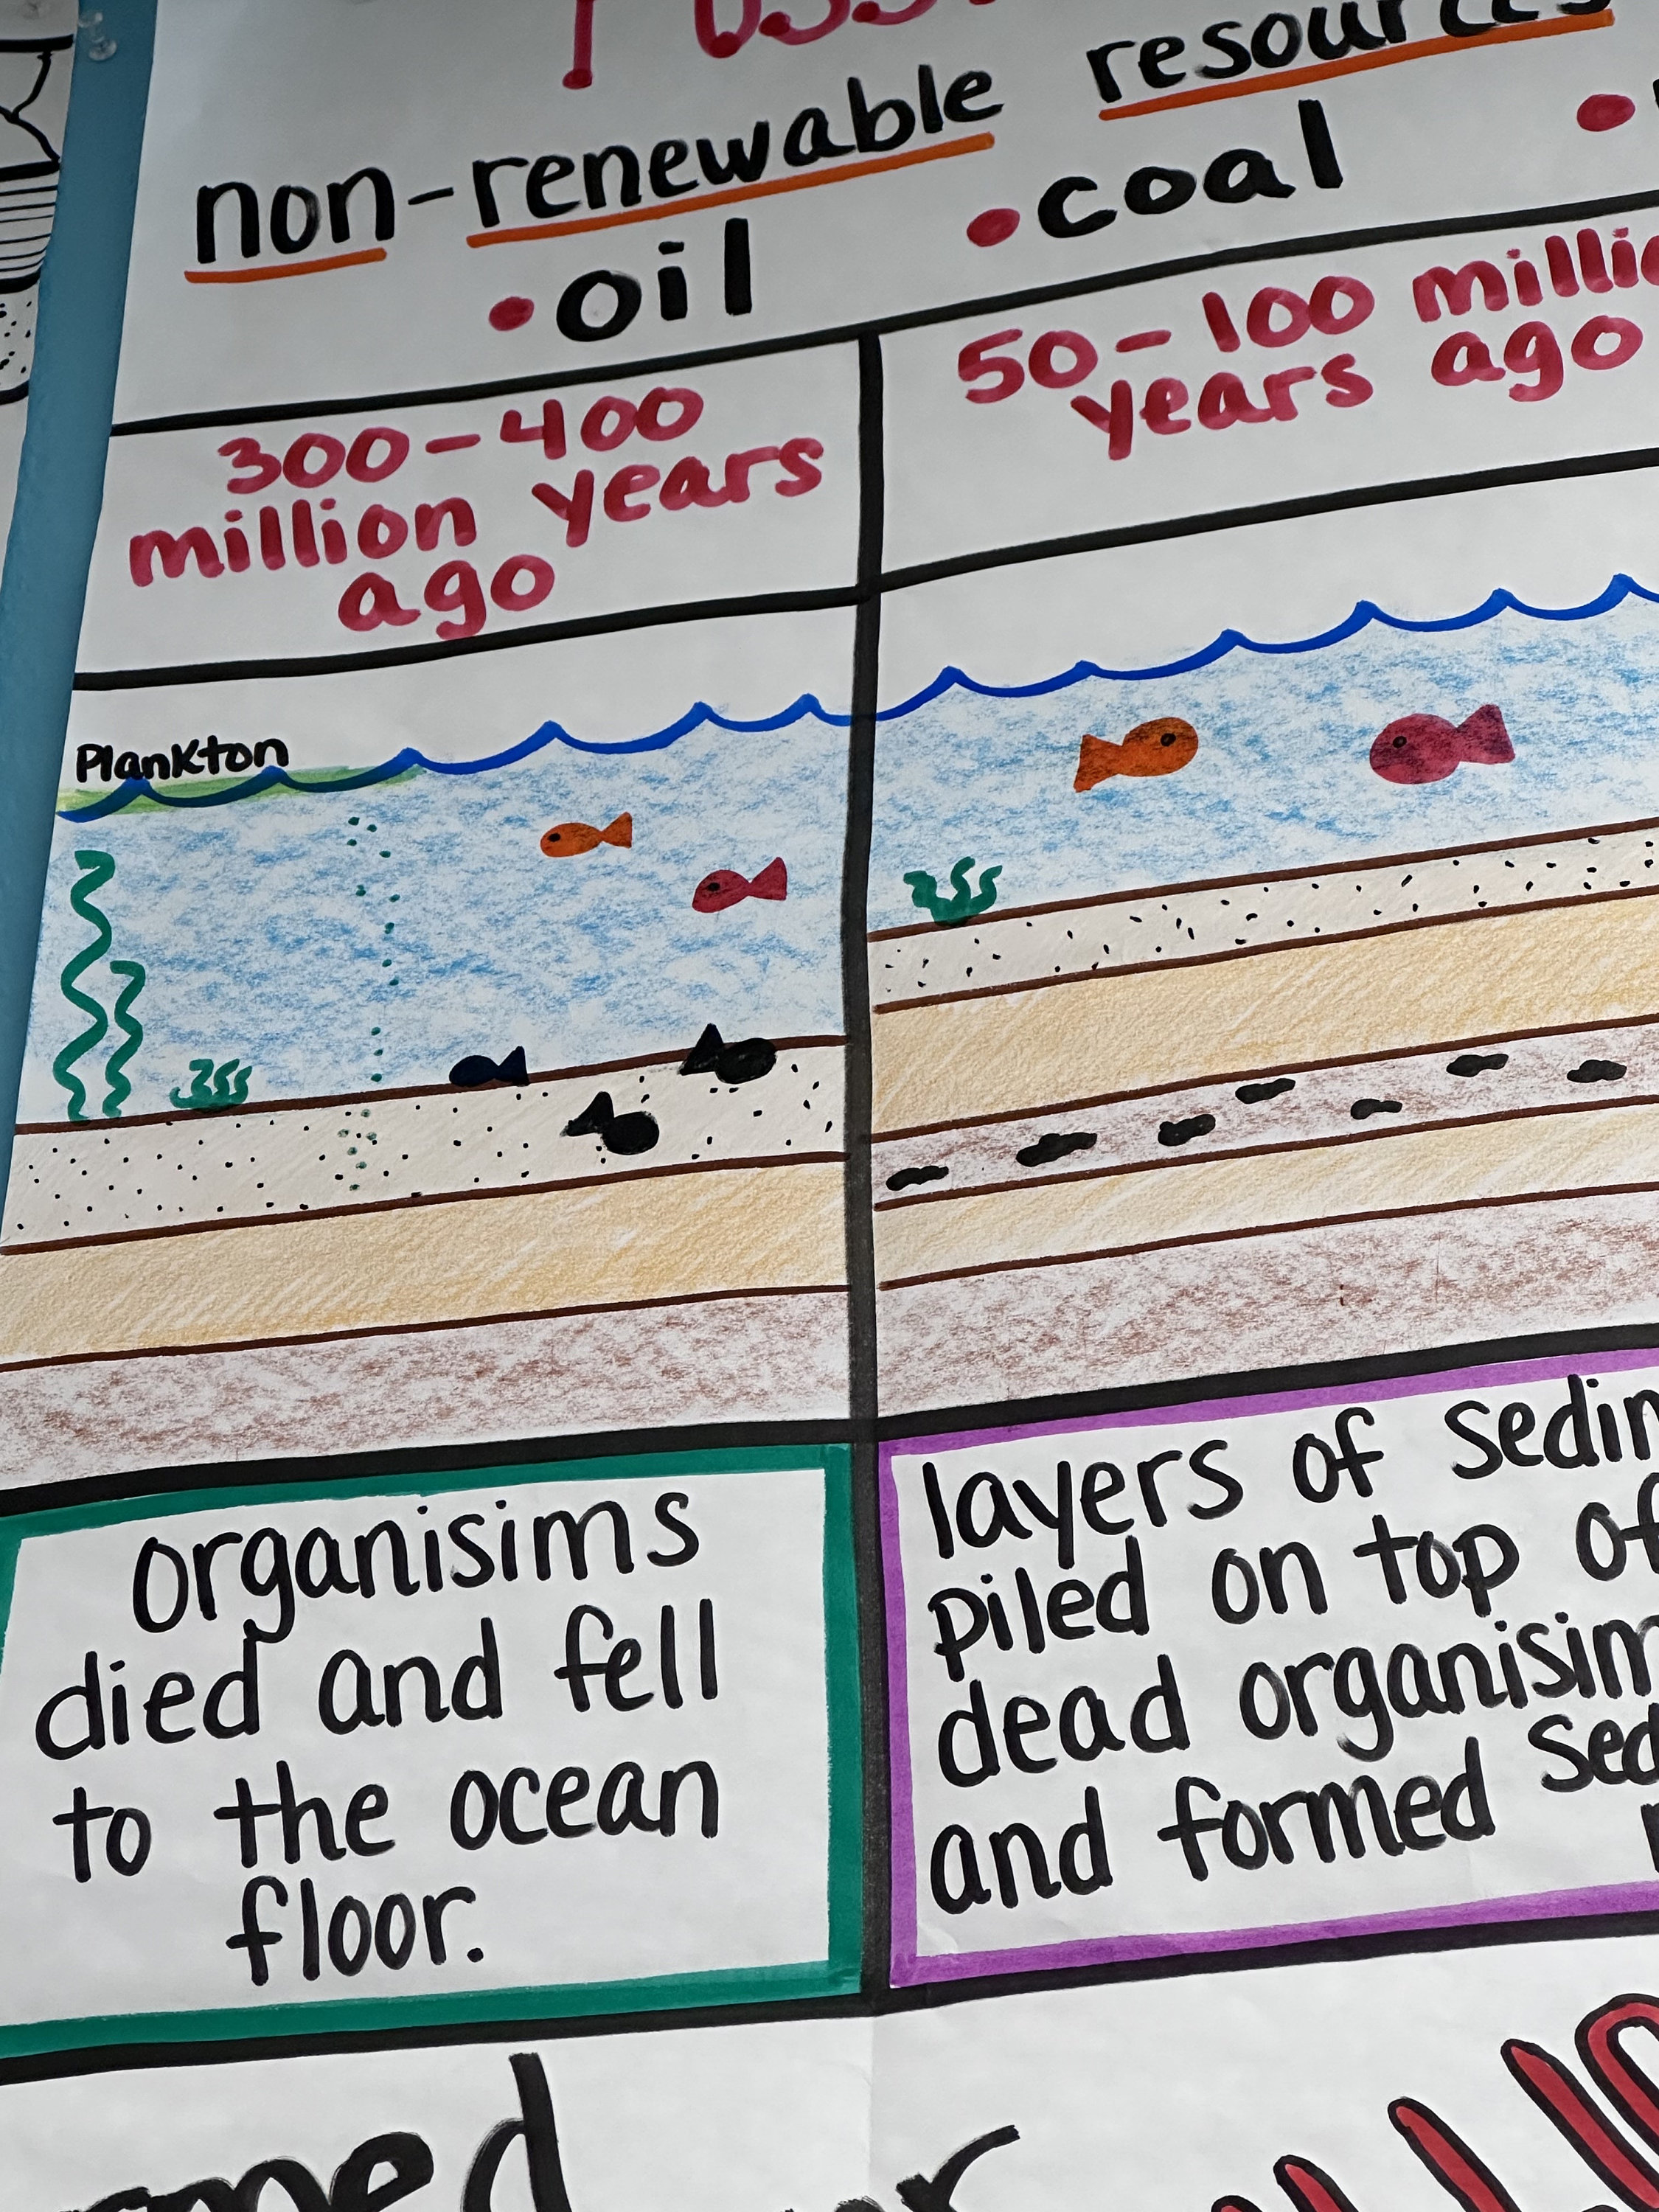 non-renewable resources
• oil • coal •
300-400
million years
ago
50-100 millio
years ago
Plankton
organisims
died and fell
to the ocean
floor.
layers of sedim
piled on top of
dead organisim
and formed sed